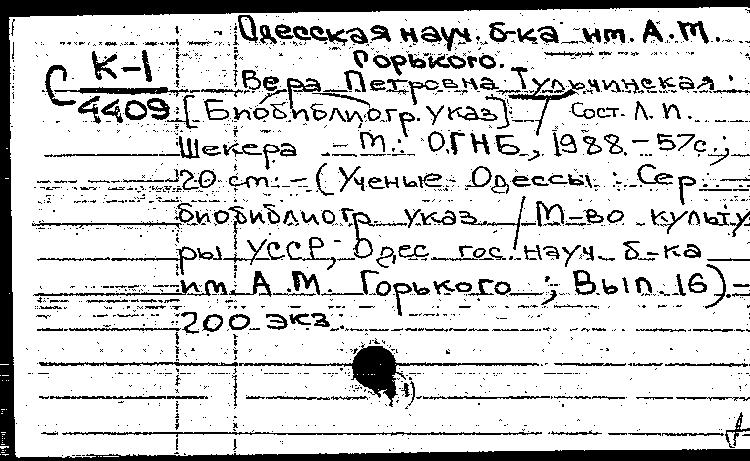 Одесская науч. б-ка им. А.М.
Горького.
С К-1
4409
Вера Петровна Тульчинская.
[Биобиблиогр. указ] / Сост. Л.П.
Шекера - М.: ОГНБ, 1988. - 57с.;
20 cm. - (Ученые Одессы : Сер.
биобиблиогр. указ. / М-во культу
ры УССР, Одес. гос. науч. б-ка
им. А.М. Горького ; Вып. 16). -
200 экз.